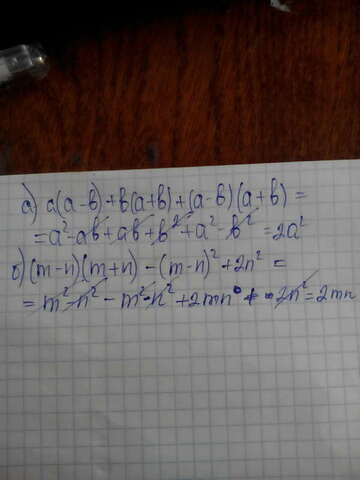 а) a(a-b)+b(a+b)+(a-b)(a+b)=
=a²-ab+ab+b²+a²-b²=2a²
б) (m-n)(m+n)-(m-n)²+2n²=
=m²-n²-m²-n²+2mn+2n²=2mn